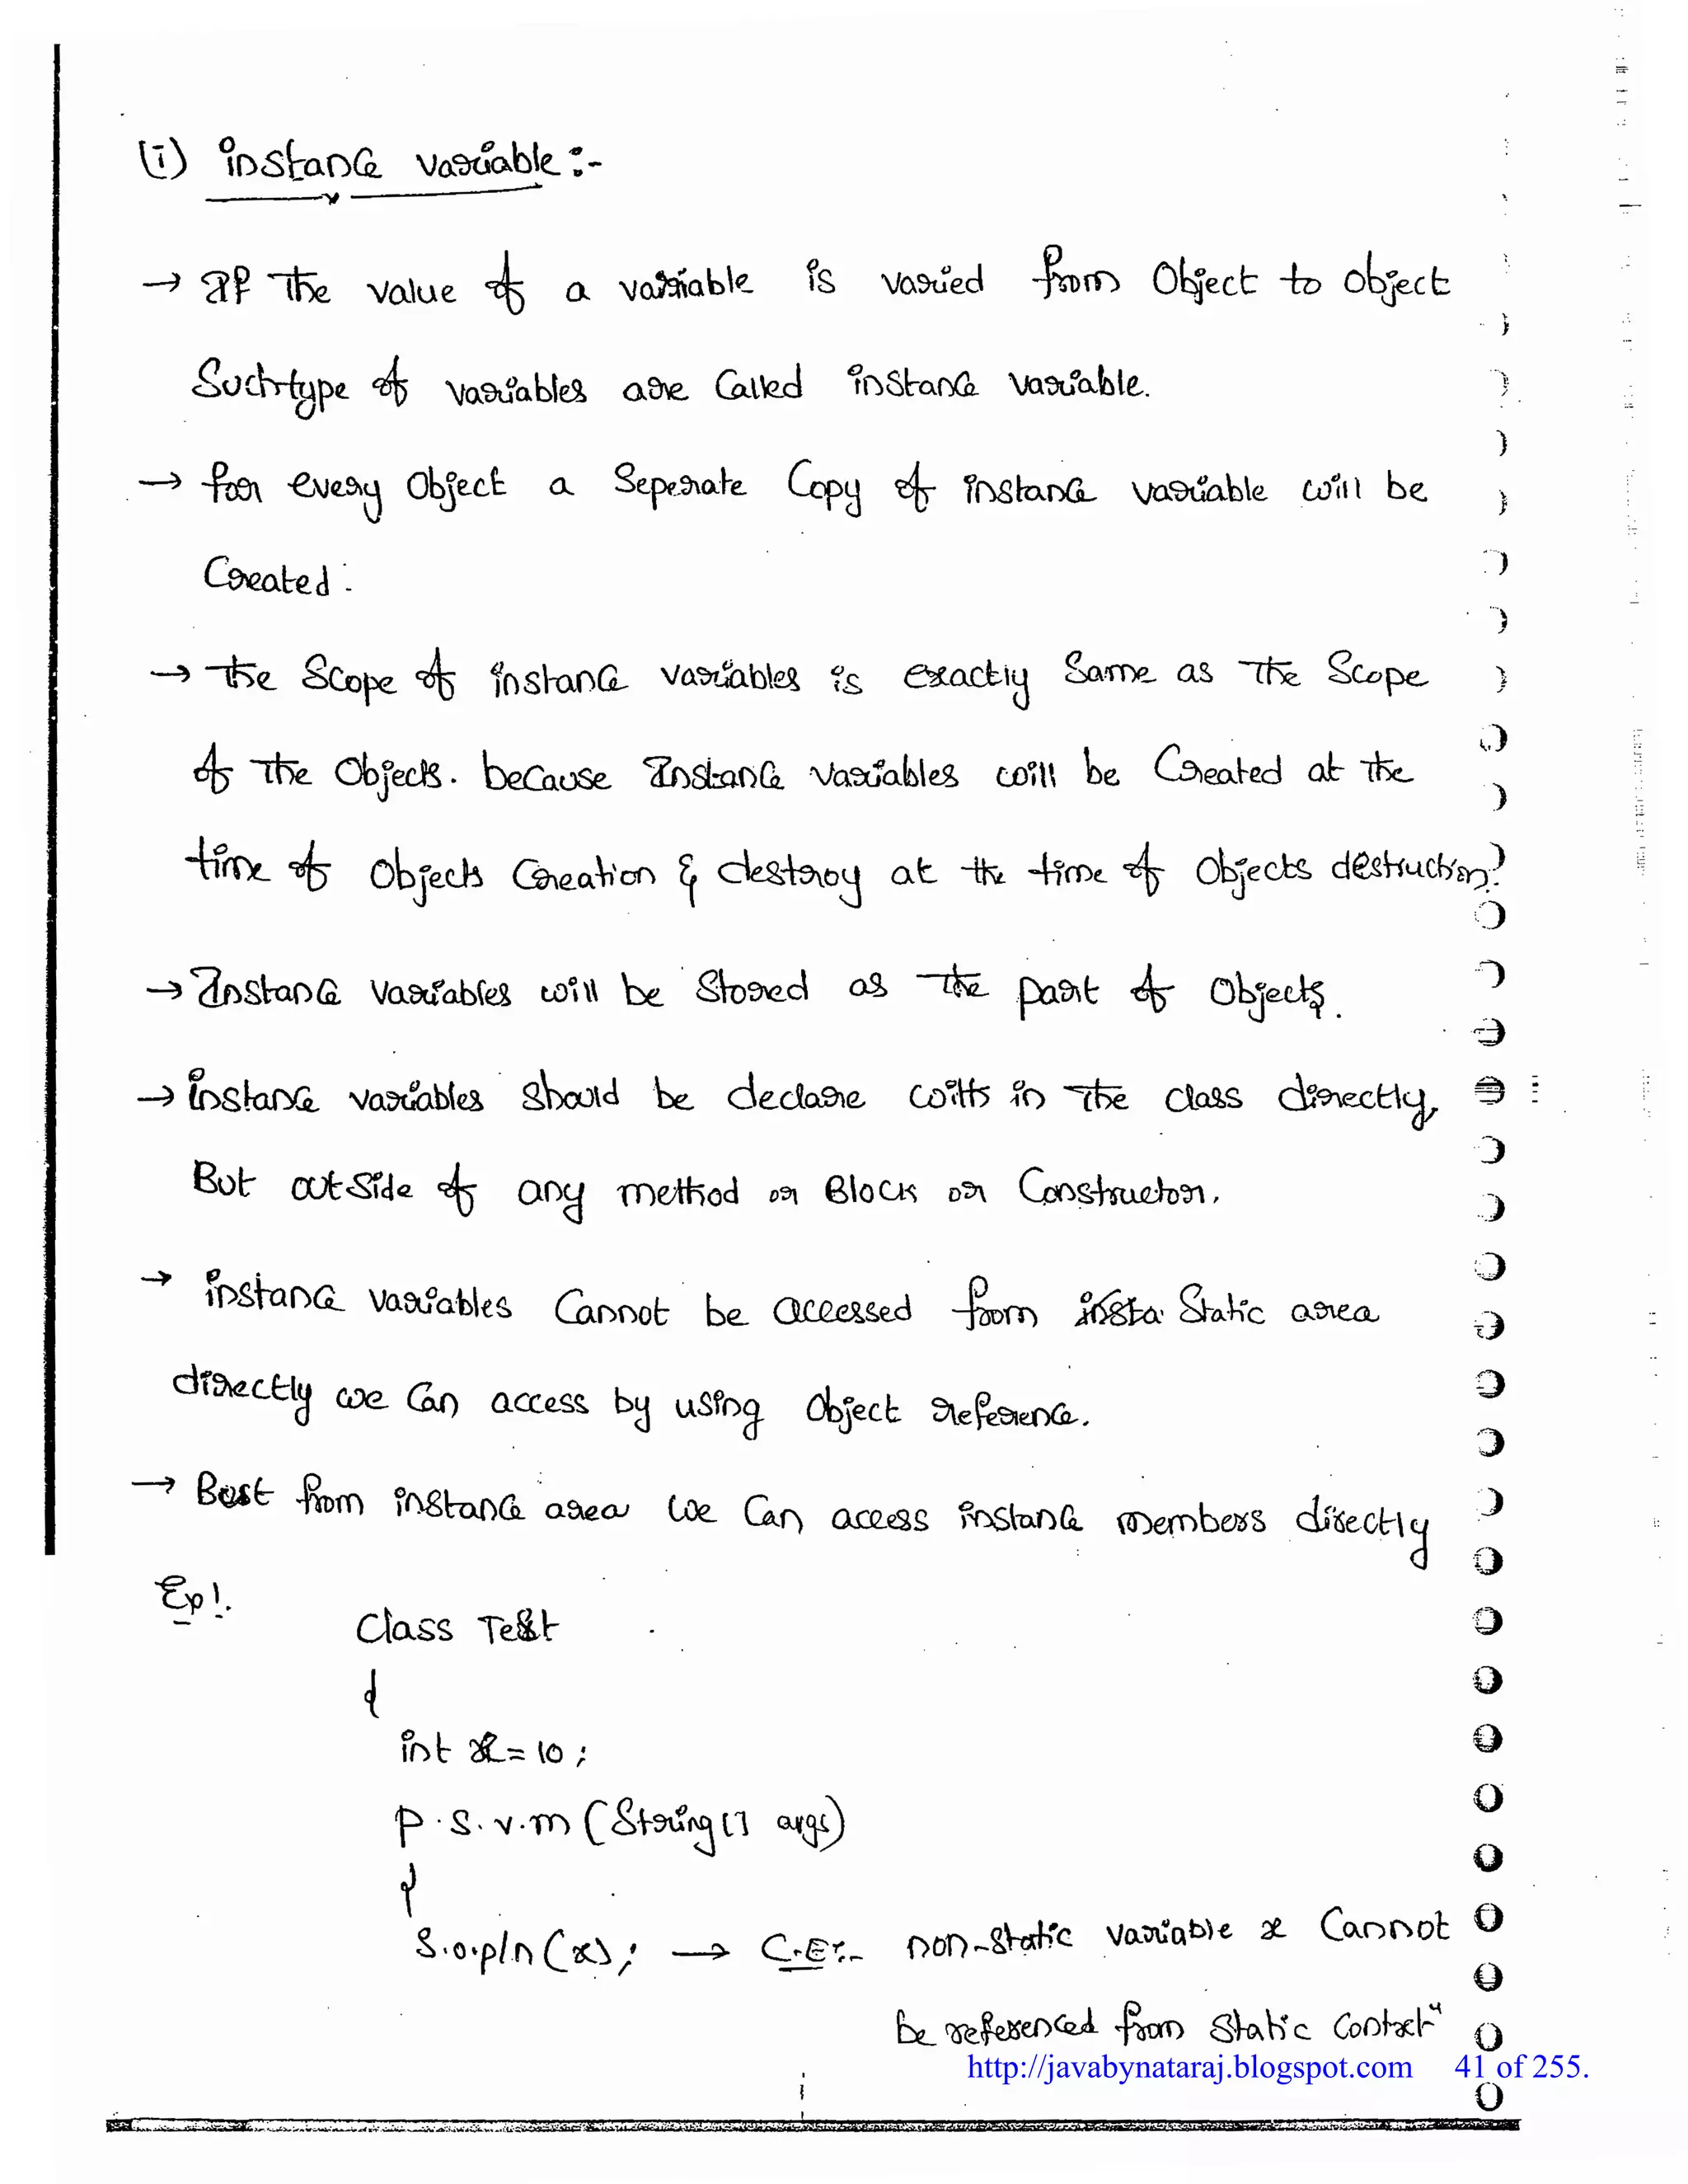 (i) instance variable :-
→ If the value of a variable is varied from Object to object
Such type of variables are Called instance variable.
→ for every Object a Seperate Copy of instance variable will be
Created.
→ the Scope of instance variables is exactly Same as The Scope
of The Objects. because Instance variables will be Created at the
time of Objects Creation & destroy at the time of Objects destruction.
→ Instance variables will be Stored as the part of Objects.
→ instance variables should be declare with in The class directly,
But outside of any method or Block or Constructor.
→ instance variables Cannot be accessed from Static area
directly we Can access by using Object reference.
→ But from instance area we Can access instance members directly
Ex!.
Class Test
{
int x = 10 ;
P. S. v. m (String [] args)
{
S.o.pln (x) ; → C.E:- non-static variable x Cannot
be referenced from static Context"
http://javabynataraj.blogspot.com 41 of 255.